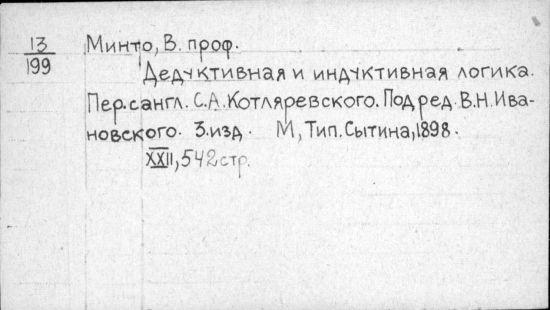 13
199
Минто, В. проф.
Дедуктивная и индуктивная логика.
Пер. с англ. С.А. Котляревского. Под ред. В.Н. Ива-
новского. 3.изд. М., Тип. Сытина, 1898.
XXII, 542 стр.